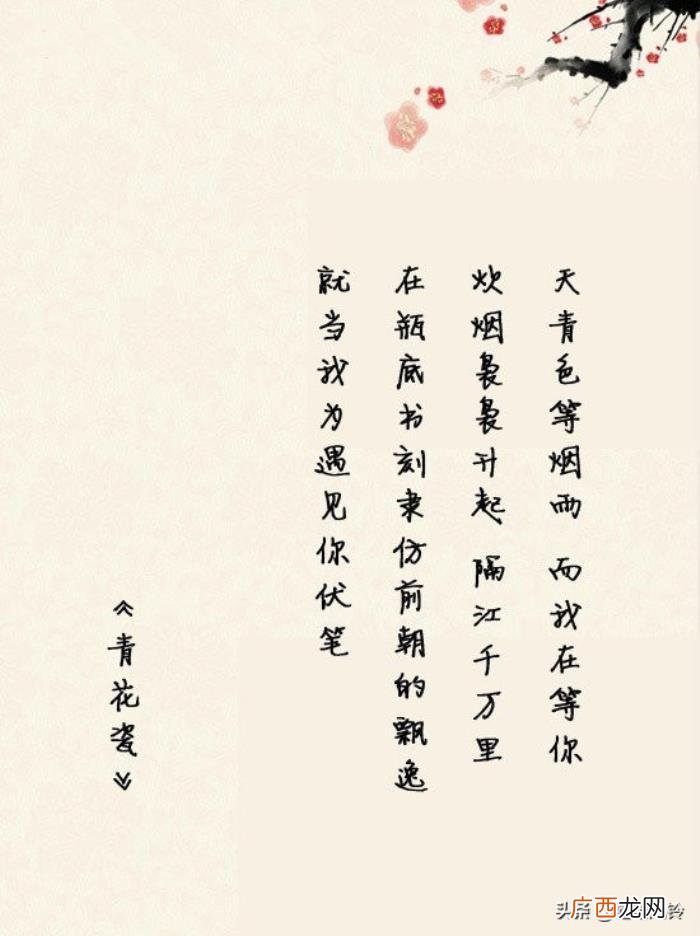 天青色等烟雨 而我在等你
炊烟袅袅升起 隔江千万里
在瓶底书刻隶仿前朝的飘逸
就当我为遇见你伏笔
《青花瓷》
广西龙网